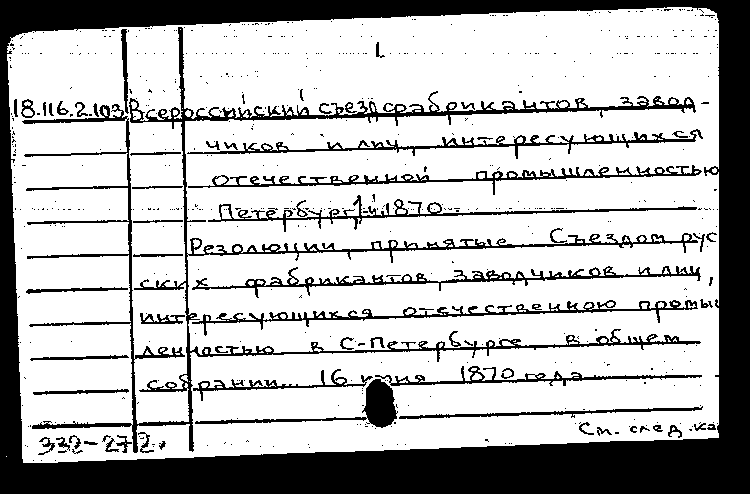 1
18.116.2.103 Всероссийский съезд фабрикантов, завод-
чиков и лиц, интересующихся
отечественной промышленностью
Петербург, 1-й, 1870.
Резолюции, принятые Съездом рус
ских фабрикантов, заводчиков и лиц,
интересующихся отечественною промыш
ленностью в С-Петербурге в общем
собрании 16 июня 1870 года
332-272.
См. след. ка